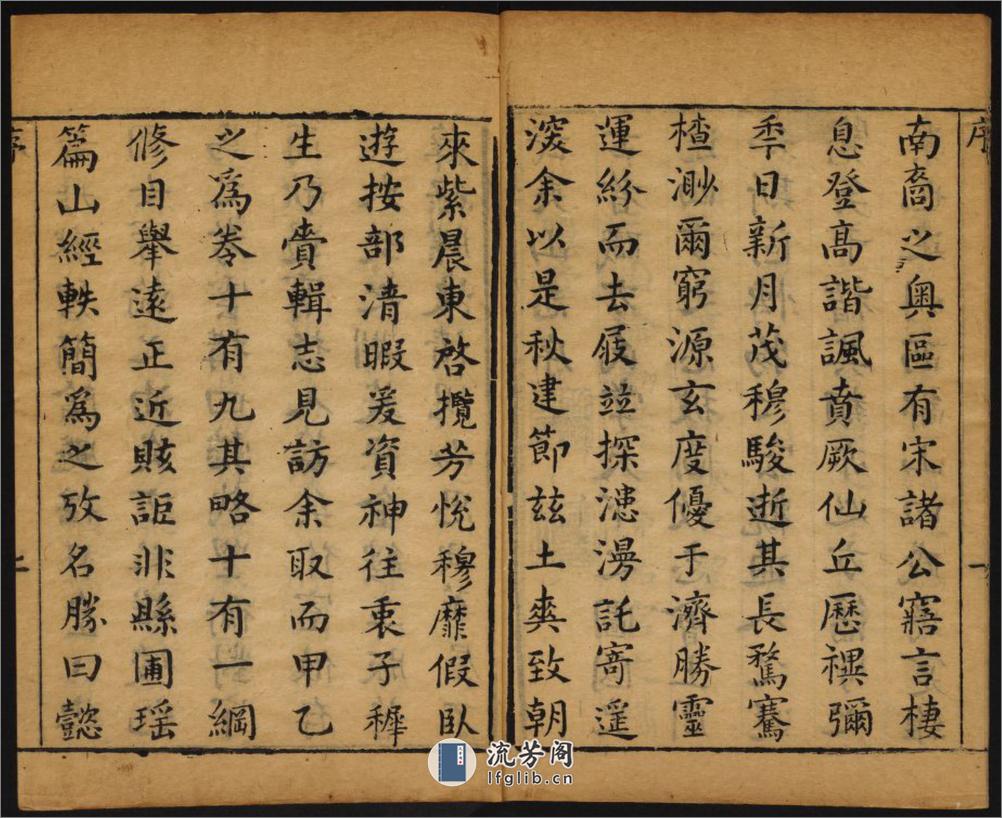 序
一
南裔之奧區有宋諸公寤言棲
息登高諧諷賁厥仙丘歷禩彌
秊日新月茂穆駿逝其長騖騫
楂渺爾窮源玄度優于濟勝靈
運紛而去屐竝探漶漫託寄遥
深余以是秋建節兹土爽致朝
來紫晨東啓攬芳悅穆靡假臥
遊按部清暇爰資神往衷子穉
生乃賷輯志見訪余取而甲乙
之爲卷十有九其略十有一綱
修目舉遠正近賅詎非縣圃瑶
篇山經軼簡爲之攷名勝曰懿
序
上
流芳阁
lfglib.cn